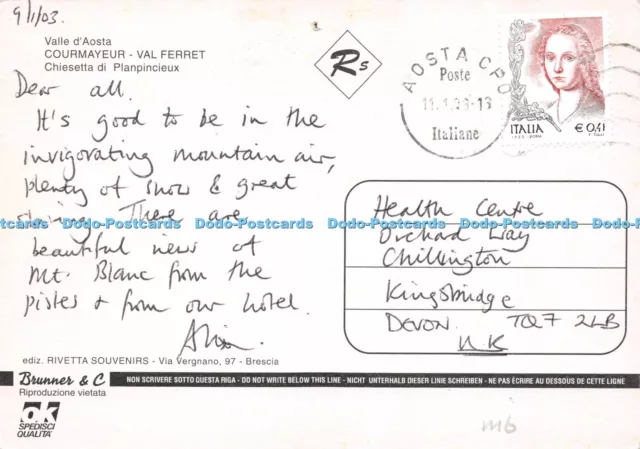 9/1/03.
Valle d'Aosta
COURMAYEUR - VAL FERRET
Chiesetta di Planpincieux
Dear all.
It's good to be in the
invigorating mountain air,
plenty of snow & great
skiing. There are
beautiful views of
Mt. Blanc from the
pistes & from our hotel.
RS
AOSTA CPO
Poste
Italiane
ITALIA
€ 0,41
Health Centre
Orchard Way
Chillington
Kingsbridge
DEVON. TQ7 2LB
UK
Dodo-Postcards Dodo-Postcards Dodo-Postcards Dodo-Postcards Dodo-Postcards
ediz. RIVETTA SOUVENIRS - Via Vergnano, 97 - Brescia
Brunner & C
Riproduzione vietata
NON SCRIVERE SOTTO QUESTA RIGA - DO NOT WRITE BELOW THIS LINE - NICHT UNTERHALB DIESER LINIE SCHREIBEN - NE PAS ÉCRIRE AU DESSOUS DE CETTE LIGNE
OK
SPEDISCI
QUALITA'
m6